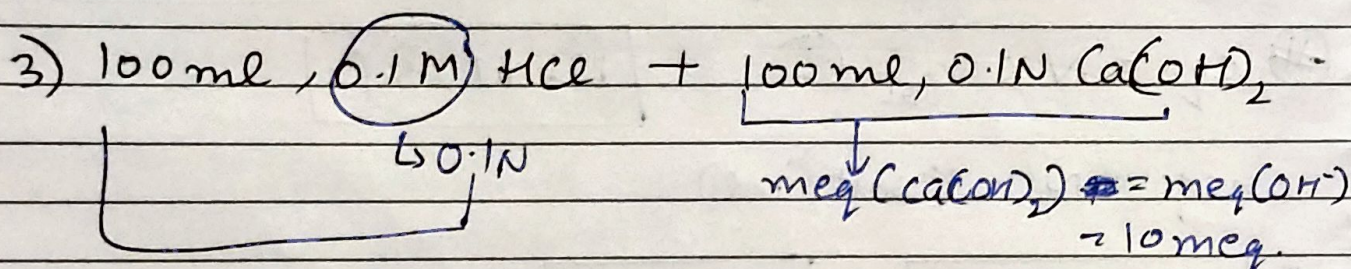 3) 100 ml, 0.1 M HCl + 100 ml, 0.1N Ca(OH)₂.
↳ 0.1N
meq (Ca(OH)₂) = meq (OH⁻)
= 10 meq.